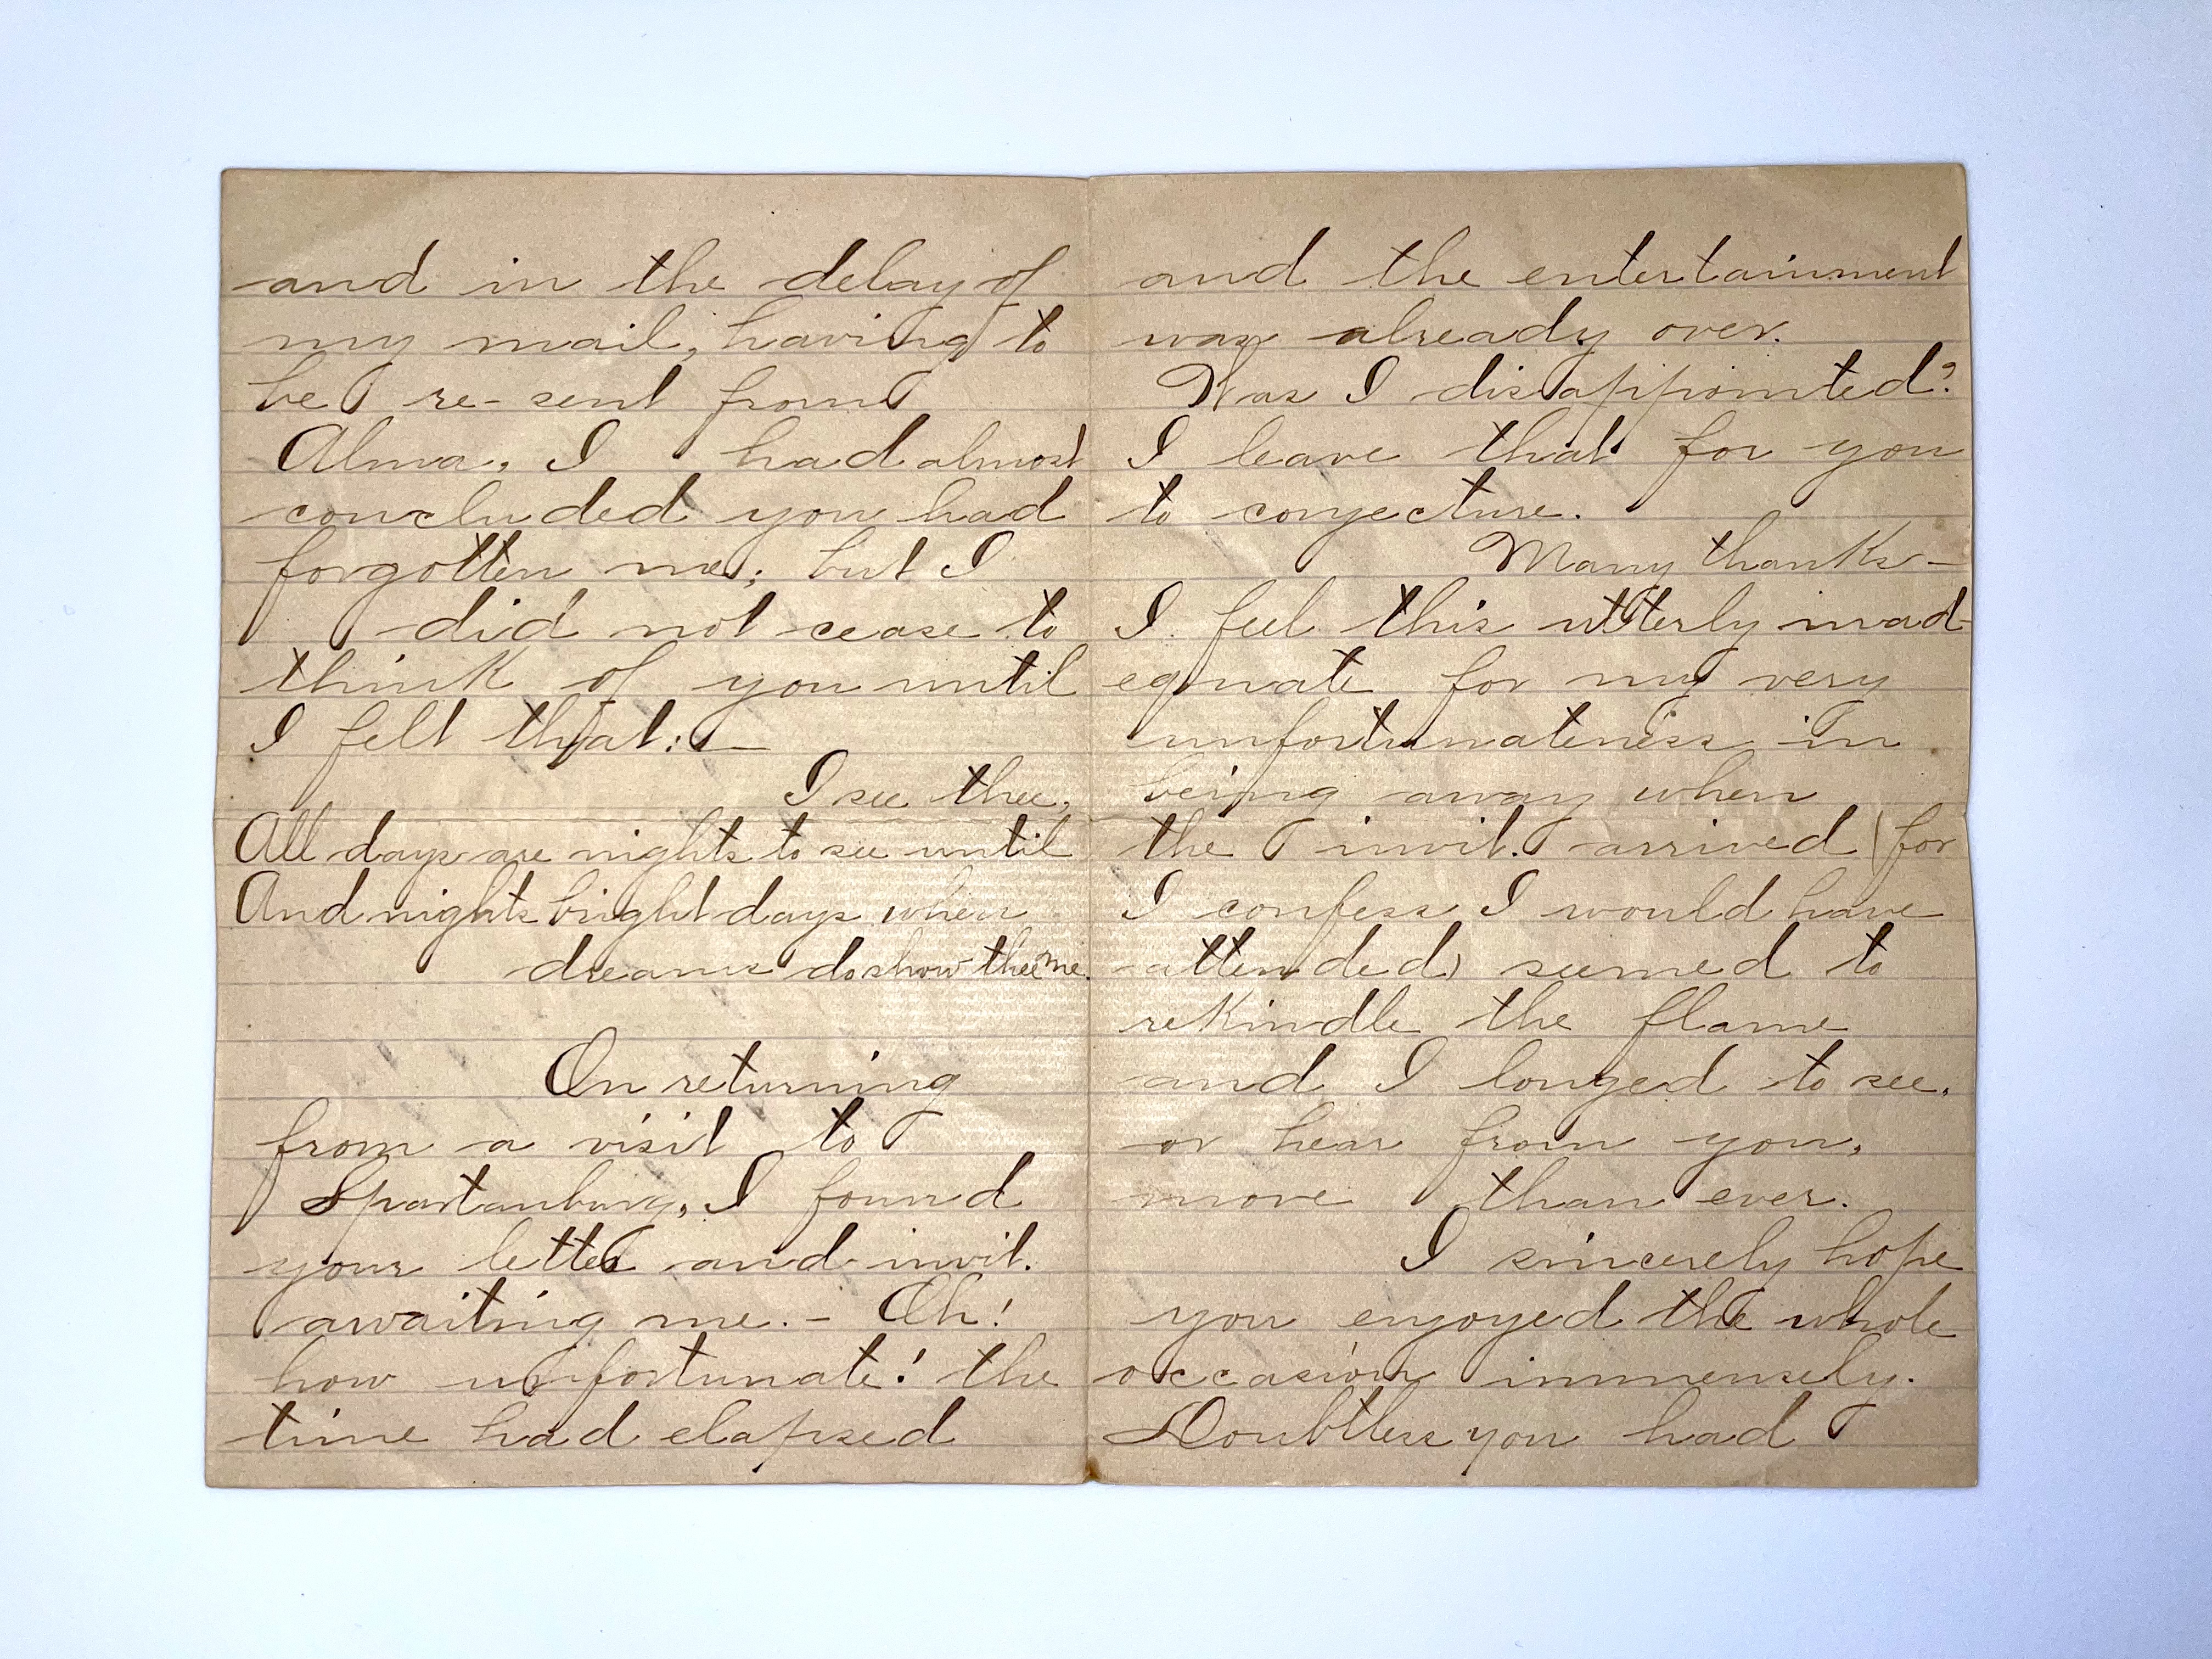 and in the delay of
my mail, having to
be re-sent from
Alma, I had almost
concluded you had
forgotten me; but I
did not cease to
think of you until
I felt that:—
I see thee,
All days are nights to see until
And nights bright days when
dreams do show thee me.
On returning
from a visit to
Spartanburg, I found
your letter and invit.
awaiting me. - Oh!
how unfortunate! the
time had elapsed
and the entertainment
was already over.
Was I disappointed?
I leave that for you
to conjecture.
Many thanks—
I feel this utterly inad-
equate for my very
unfortunateness in
being away when
the invit. arrived (for
I confess I would have
attended) seemed to
rekindle the flame
and I longed to see,
or hear from you,
more than ever.
I sincerely hope
you enjoyed the whole
occasion immensely.
Doubtless you had